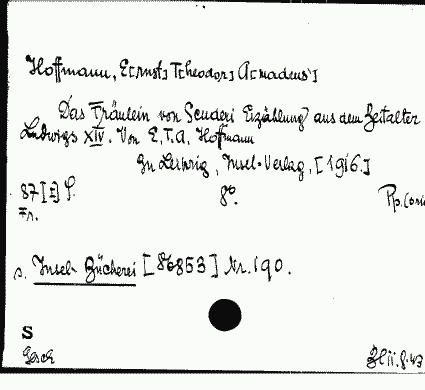 Hoffmann, E[rnst] T[heodor] A[madeus]
Das Fräulein von Scuderi Erzählung aus dem Zeitalter
Ludwigs XIV. Von E. T. A. Hoffmann
Zu Leipzig, Insel-Verlag, [1916.]
87 [I] S. 8°. Pp.
Fr.
s. Insel-Bücherei [86853] Nr. 190.
S